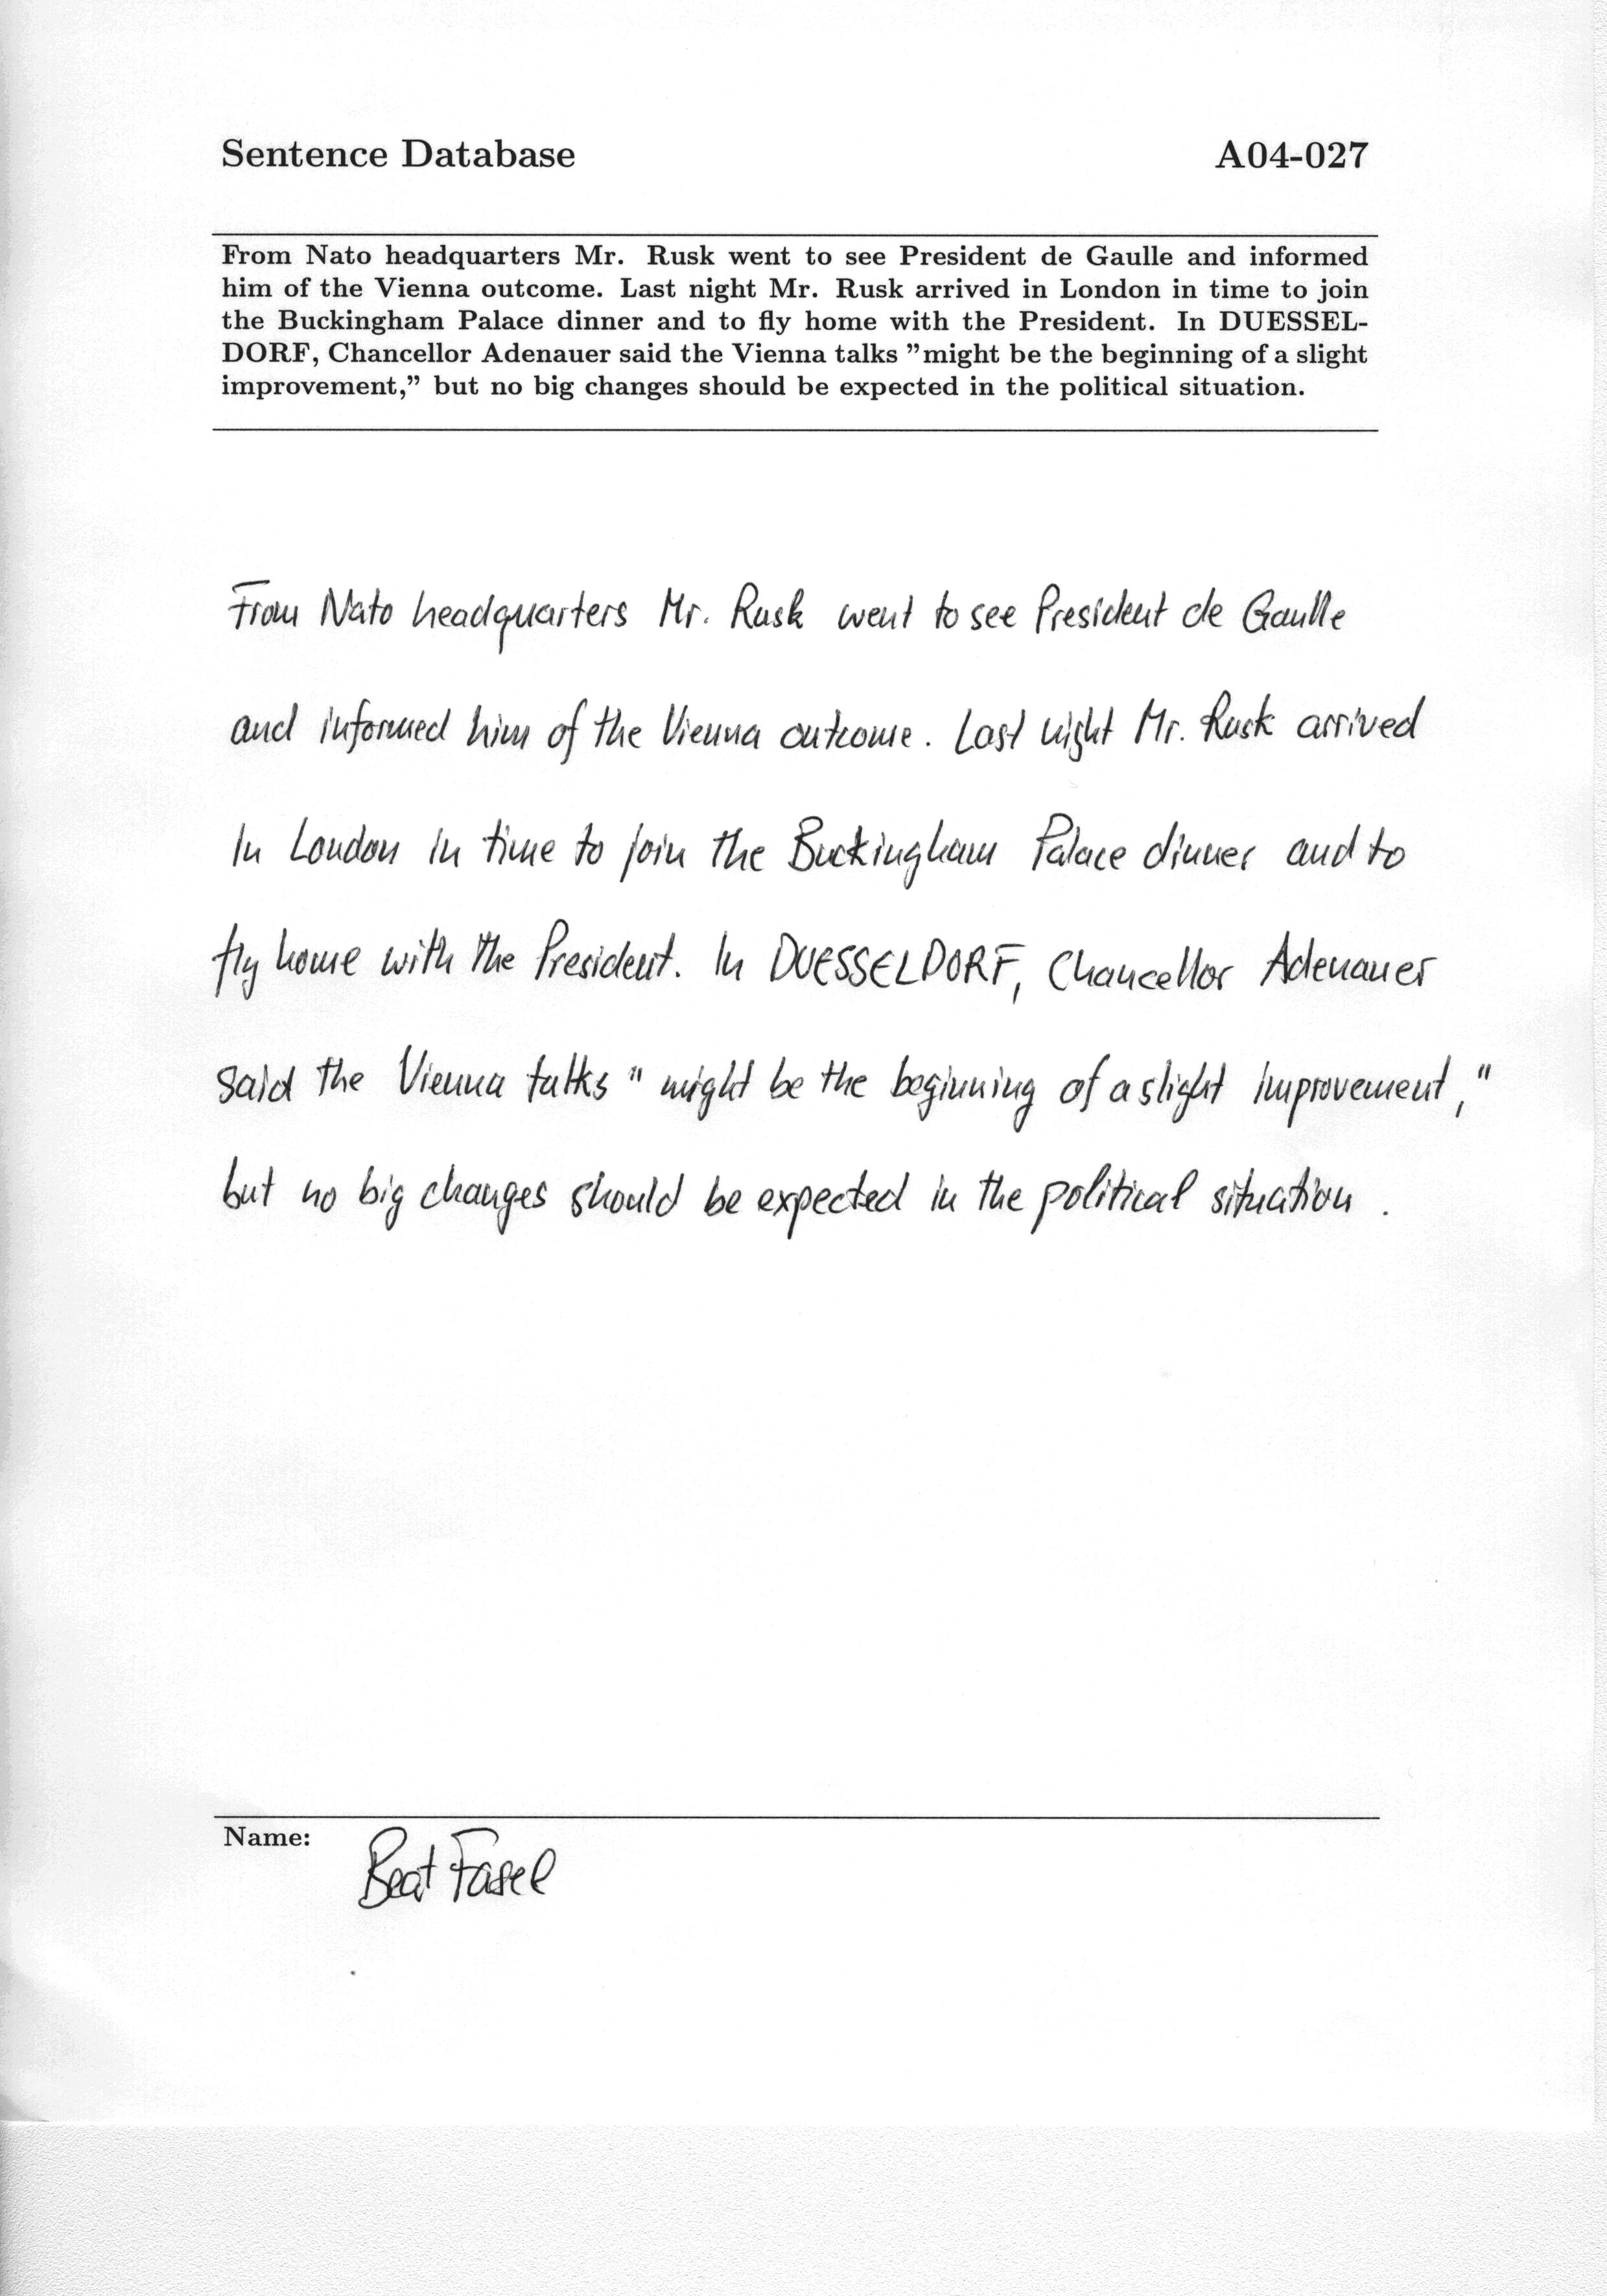 Sentence Database A04-027
From Nato headquarters Mr. Rusk went to see President de Gaulle and informed
him of the Vienna outcome. Last night Mr. Rusk arrived in London in time to join
the Buckingham Palace dinner and to fly home with the President. In DUESSEL-
DORF, Chancellor Adenauer said the Vienna talks "might be the beginning of a slight
improvement," but no big changes should be expected in the political situation.
From Nato headquarters Mr. Rusk went to see President de Gaulle
and informed him of the Vienna outcome. Last night Mr. Rusk arrived
in London in time to join the Buckingham Palace dinner and to
fly home with the President. In DUESSELDORF, Chancellor Adenauer
said the Vienna talks " might be the beginning of a slight improvement,"
but no big changes should be expected in the political situation .
Name: Beat Fasel